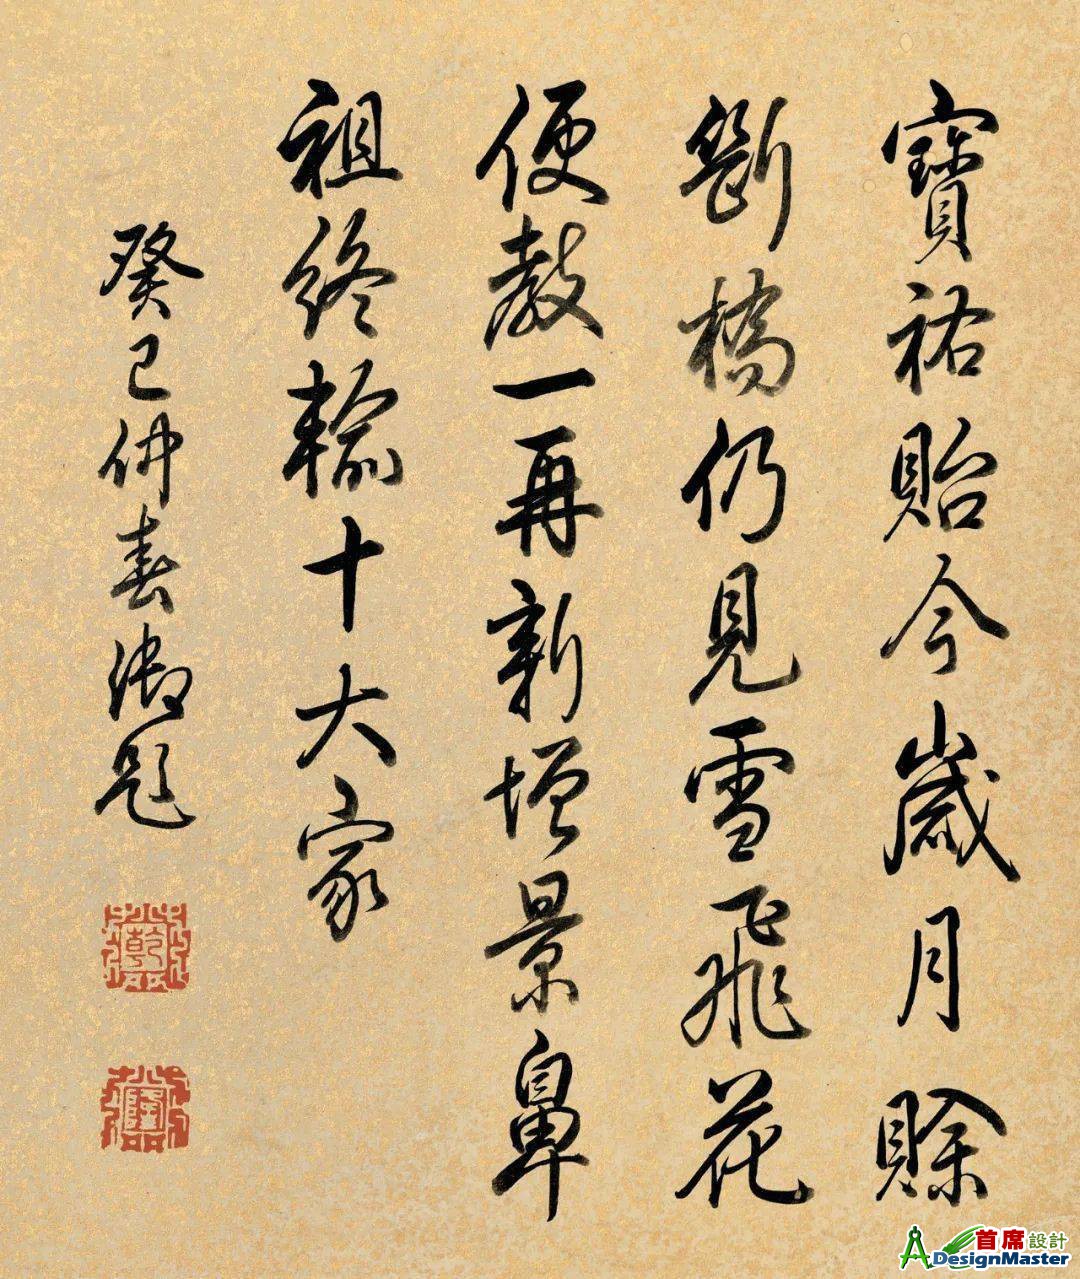 寶祐貽今歲月賒
斷橋仍見雪飛花
便教一再新增景
鼻祖終輸十大家
癸巳仲春御題
乾
隆
首席設計
ADesignMaster